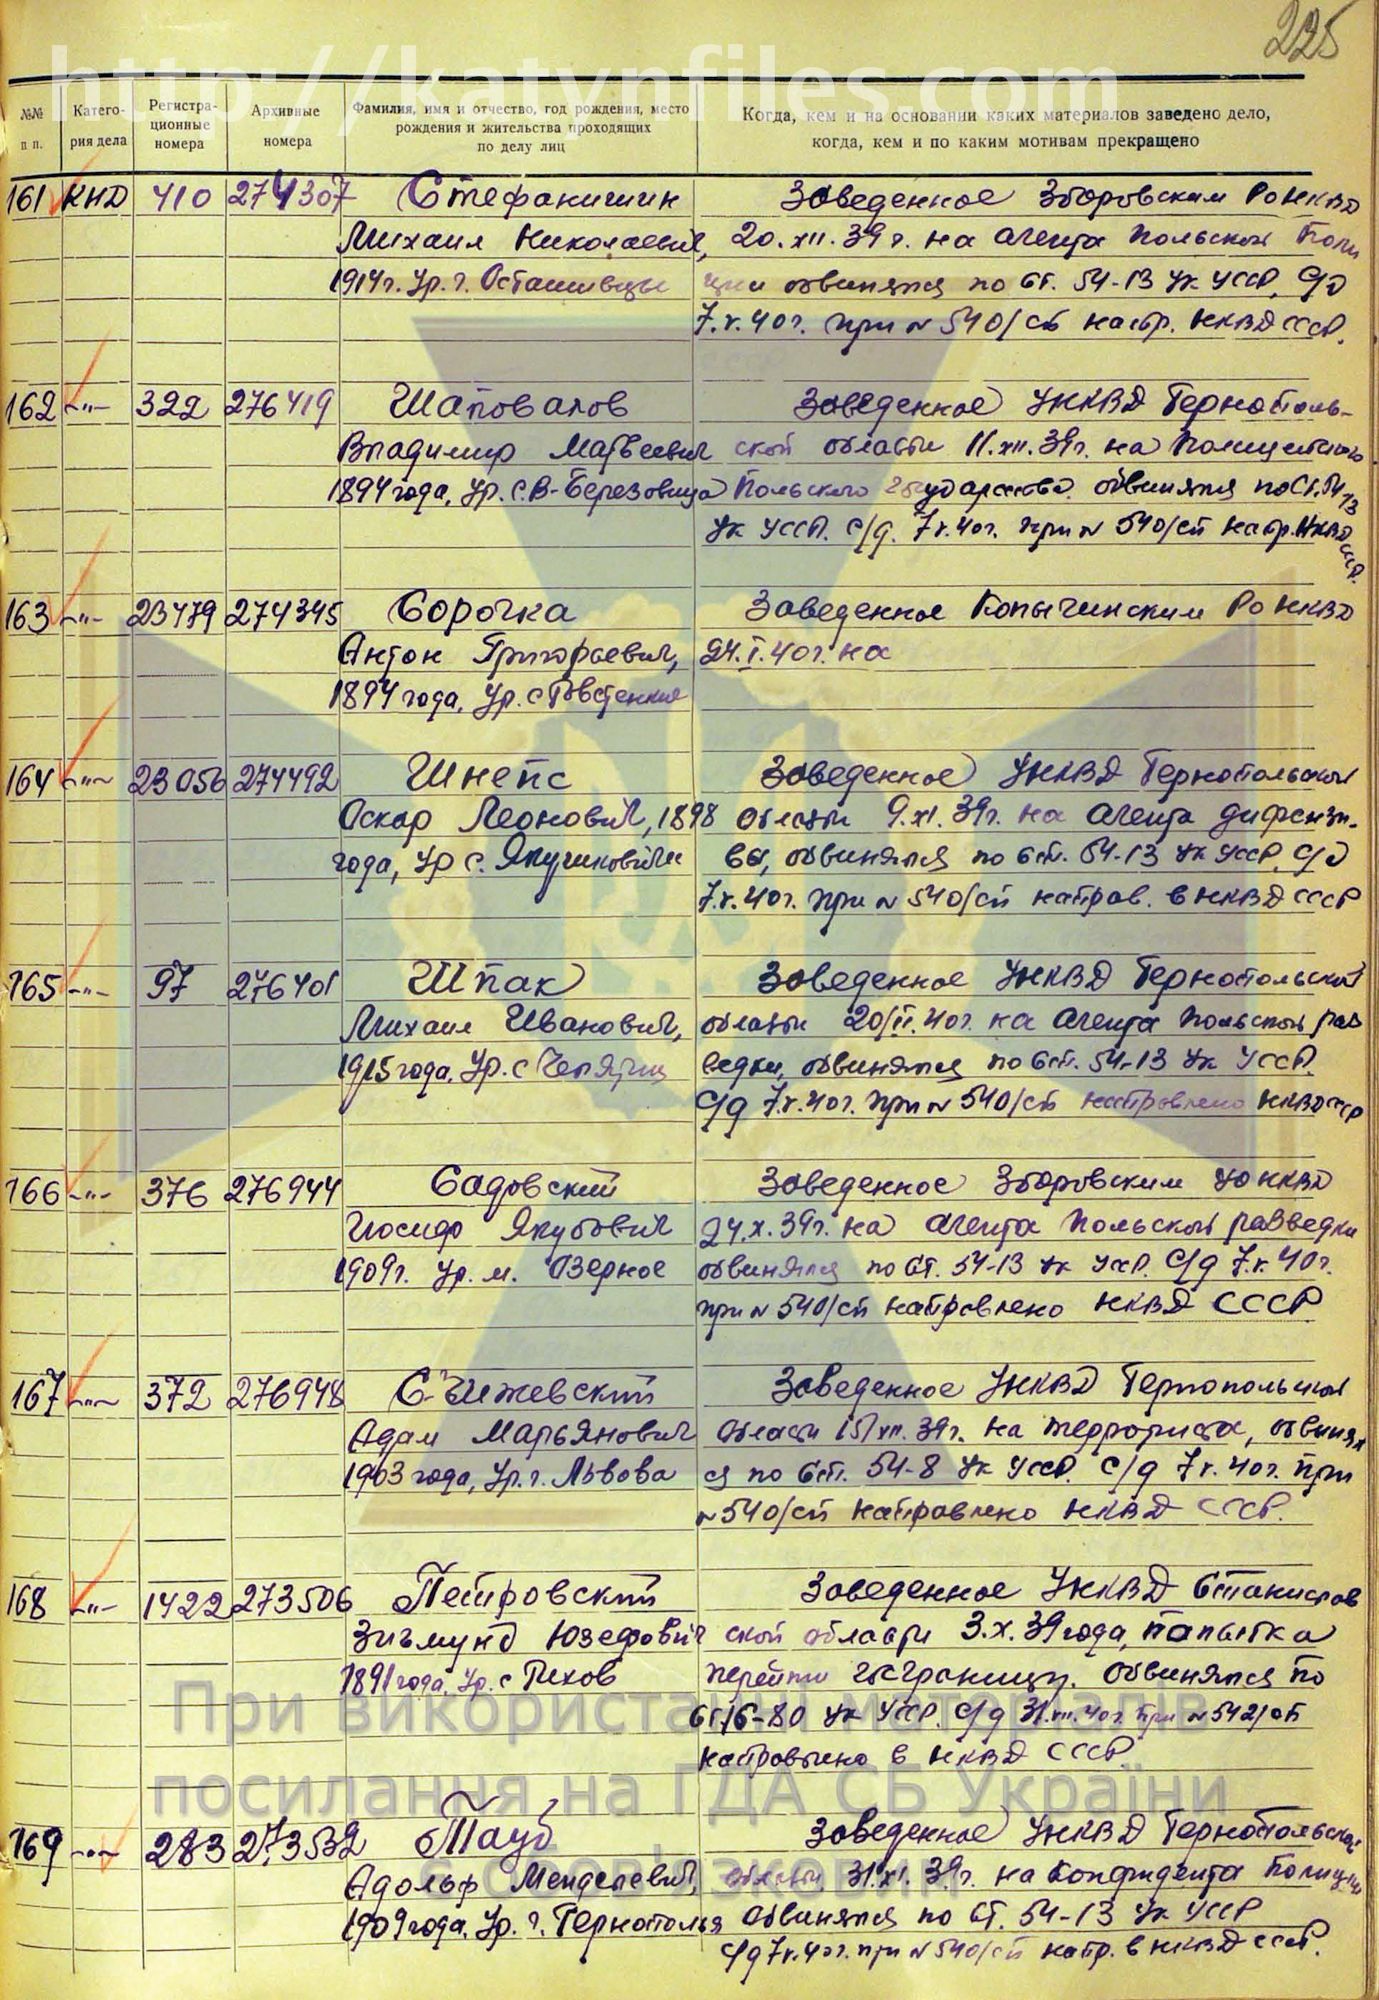 225
http://katynfiles.com
№№ п п.
Катего-рия дела
Регистра-ционные номера
Архивные номера
Фамилия, имя и отчество, год рождения, место рождения и жительства проходящих по делу лиц
Когда, кем и на основании каких материалов заведено дело, когда, кем и по каким мотивам прекращено
161 КНД 410 274307 Стефанишин Заведенное Зборовским РО НКВД
Михаил Николаевич, 20.XII.39 г. на агента польской поли
1914 г. ур. г. Осташивцы ции обвинялся по ст. 54-13 УК УССР, с/д
7.V.40 г. при № 540/сп напр. НКВД СССР.
162 -"- 322 276419 Шаповалов Заведенное УНКВД Тернополь-
Владимир Матвеевич ской области 11.XII.39 г. на полицейского
1894 года, ур. с. В-Березовица Польского государства. обвинялся по ст. 54-13
УК УССР. с/д. 7.V.40 г. при № 540/сп напр. НКВД СССР.
163 -"- 23479 274345 Сорочка Заведенное Копычинским РО НКВД
Антон Григорьевич, 24.I.40 г. на
1894 года, ур. с
164 -"- 23056 274492 Шнепс Заведенное УНКВД Тернопольской
Оскар Леонович, 1898 области 9.XI.39 г. на агента дифензи-
года, ур с. вы, обвинялся по ст. 54-13 УК УССР, с/д
7.V.40 г. при № 540/сп направ. в НКВД СССР
165 -"- 97 276401 Шпак Заведенное УНКВД Тернопольской
Михаил Иванович, области 20/II.40 г. на агента польской раз
1915 года, ур. с ведки, обвинялся по ст. 54-13 УК УССР.
с/д 7.V.40 г. при № 540/сп направлено НКВД СССР
166 -"- 376 276944 Садовский Заведенное Зборовским УО НКВД
Иосиф Якубович 24.X.39 г. на агента польской разведки
1909 г. ур. м. Озерное обвинялся по ст. 54-13 УК УССР. с/д 7.V.40 г.
при № 540/сп направлено НКВД СССР
167 -"- 372 276948 С-Чижевский Заведенное УНКВД Тернопольской
Адам Марьянович области 15/XII.39 г. на террориста, обвинял
1903 года, ур. г. Львова ся по ст. 54-8 УК УССР. с/д 7.V.40 г. при
№ 540/сп направлено НКВД СССР.
168 -"- 1422 273506 Петровский Заведенное УНКВД Станислав
Зигмунд Юзефович ской области 3.X.39 года, попытка
1891 года, ур. с перейти госграницу. Обвинялся по
ст. 16-80 УК УССР. с/д 31.VII.40 г. при № 542/сп
направлено в НКВД СССР.
169 -"- 283 273532 Тауб Заведенное УНКВД Тернопольской
Адольф Менделевич, области 31.XI.39 г. на конфидента полиции
1909 года, ур. г. Тернополья обвинялся по ст. 54-13 УК УССР
с/д 7.V.40 г. при № 540/сп напр. в НКВД СССР.
При використанні матеріалів
посилання на ГДА СБ України
є обов'язковим